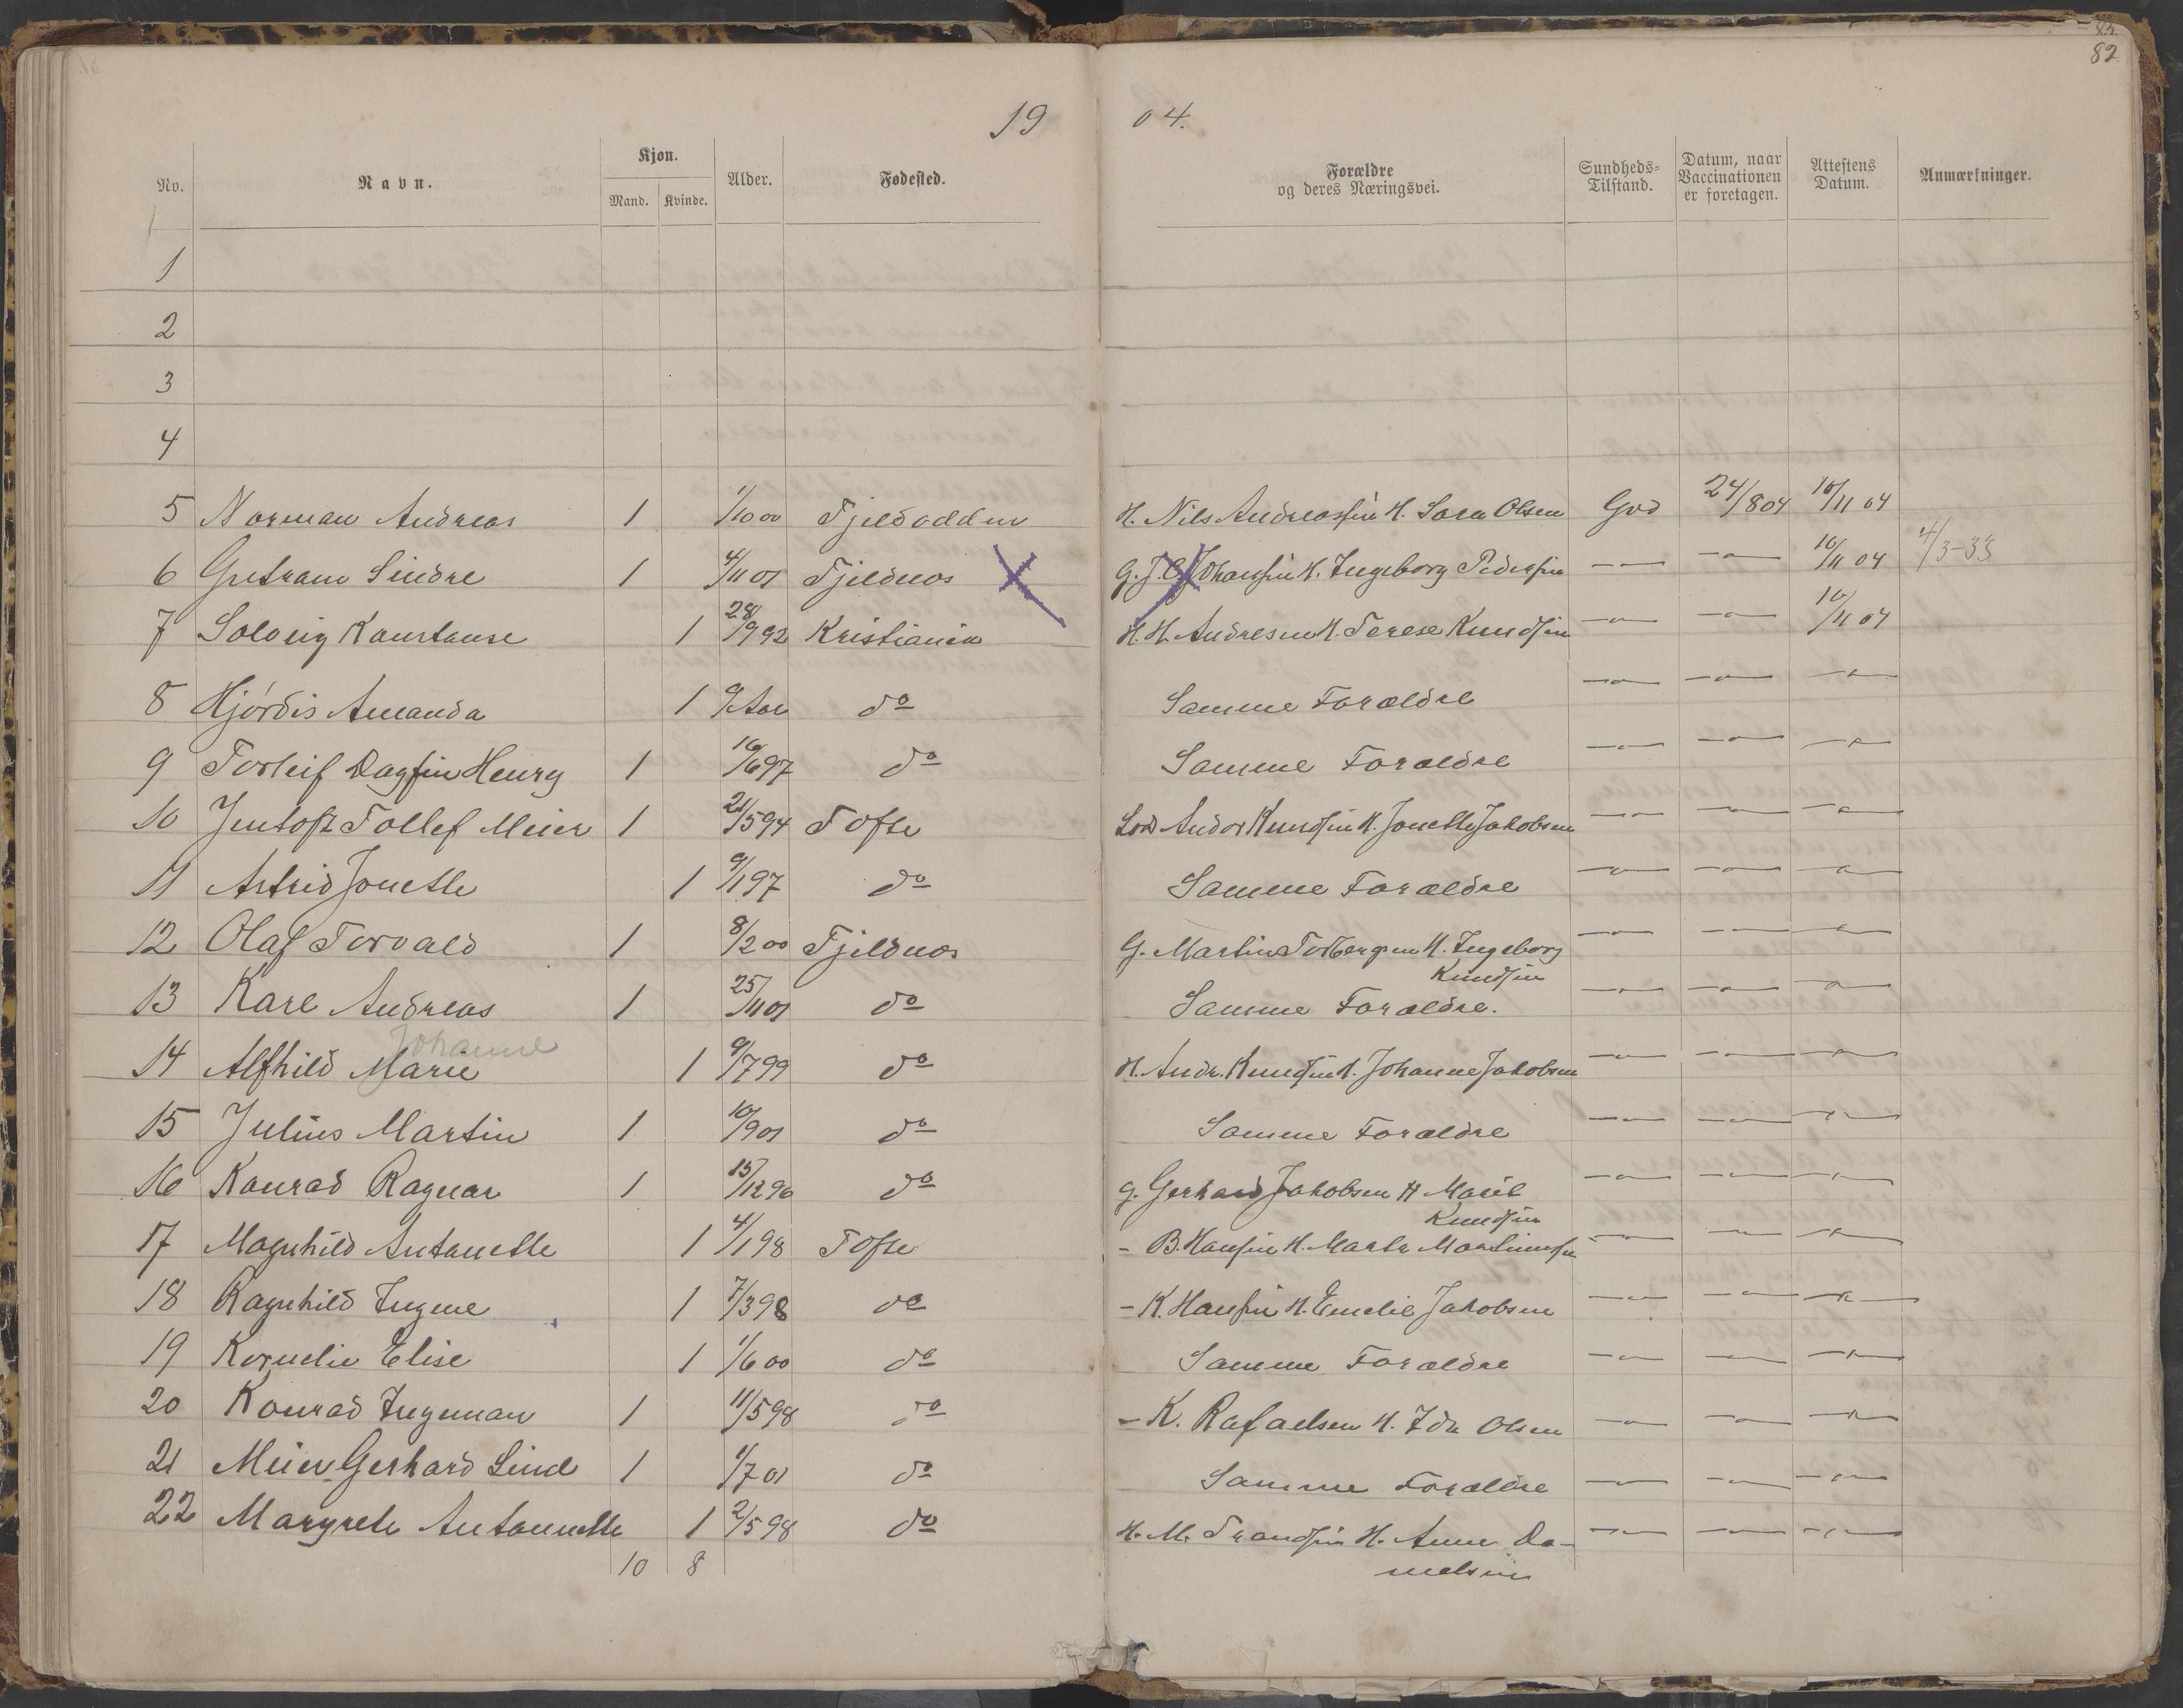 82
19 04.
No. Navn. Kjøn. Mand. Kvinde. Alder. Fødested. Forældre og deres Næringsvei. Sundheds-Tilstand. Datum, naar Vaccinationen er foretagen. Attestens Datum. Anmærkninger.
1
2
3
4
5 Norman Andreas 1 1/10 00 Fjeldodden H. Nils Andreassen H. Sara Olsen God 24/8 04 10/11 04
6 Gutram Sindre 1 4/11 01 Fjeldnes G. J. C. Johansen H. Ingeborg Pedersen —"— —"— 10/11 04 4/3-33
7 Solveig Konstanse 1 28/9 92 Kristiania H. H. Andresen H. Terese Knudsen —"— —"— 10/11 04
8 Hjördis Amanda 1 9 Aar do Samme Forældre —"— —"— —"—
9 Torleif Dagfin Henry 1 16/6 97 do Samme Forældre —"— —"— —"—
10 Jentoft Tollef Meier 1 21/5 94 Tofte Andor Knudsen H. Jonette Jakobsen —"— —"— —"—
11 Astrid Jonette 1 9/1 97 do Samme Forældre —"— —"— —"—
12 Olaf Torvald 1 8/2 00 Fjeldnes G. Martin Torbergsen H. Ingeborg —"— —"— —"—
Knudsen
13 Karl Andreas 1 25/11 01 do Samme Forældre. —"— —"— —"—
Johanne
14 Alfhild Marie 1 9/7 99 do H. Andr. Knudsen H. Johanne Jakobsen —"— —"— —"—
15 Julius Martin 1 10/9 01 do Samme Forældre —"— —"— —"—
16 Konrad Ragnar 1 15/12 96 do G. Gerhard Jakobsen H Marit —"— —"— —"—
Knudsen
17 Magnhild Antonette 1 4/1 98 Tofte - B. Hansen H. Marta Martinussen —"— —"— —"—
18 Ragnhild Ingine 1 7/3 98 do - K. Hansen H. Emelie Jakobsen —"— —"— —"—
19 Kornelie Elise 1 1/6 00 do Samme Forældre —"— —"— —"—
20 Konrad Ingeman 1 11/5 98 do - K. Rafaelsen H. Ida Olsen —"— —"— —"—
21 Meier Gerhard Lind 1 1/7 01 do Samme Forældre —"— —"— —"—
22 Margrete Antonette 1 2/5 98 do H. M. Trondsen H. Anne Da- —"— —"— —"—
10 8 nielsen